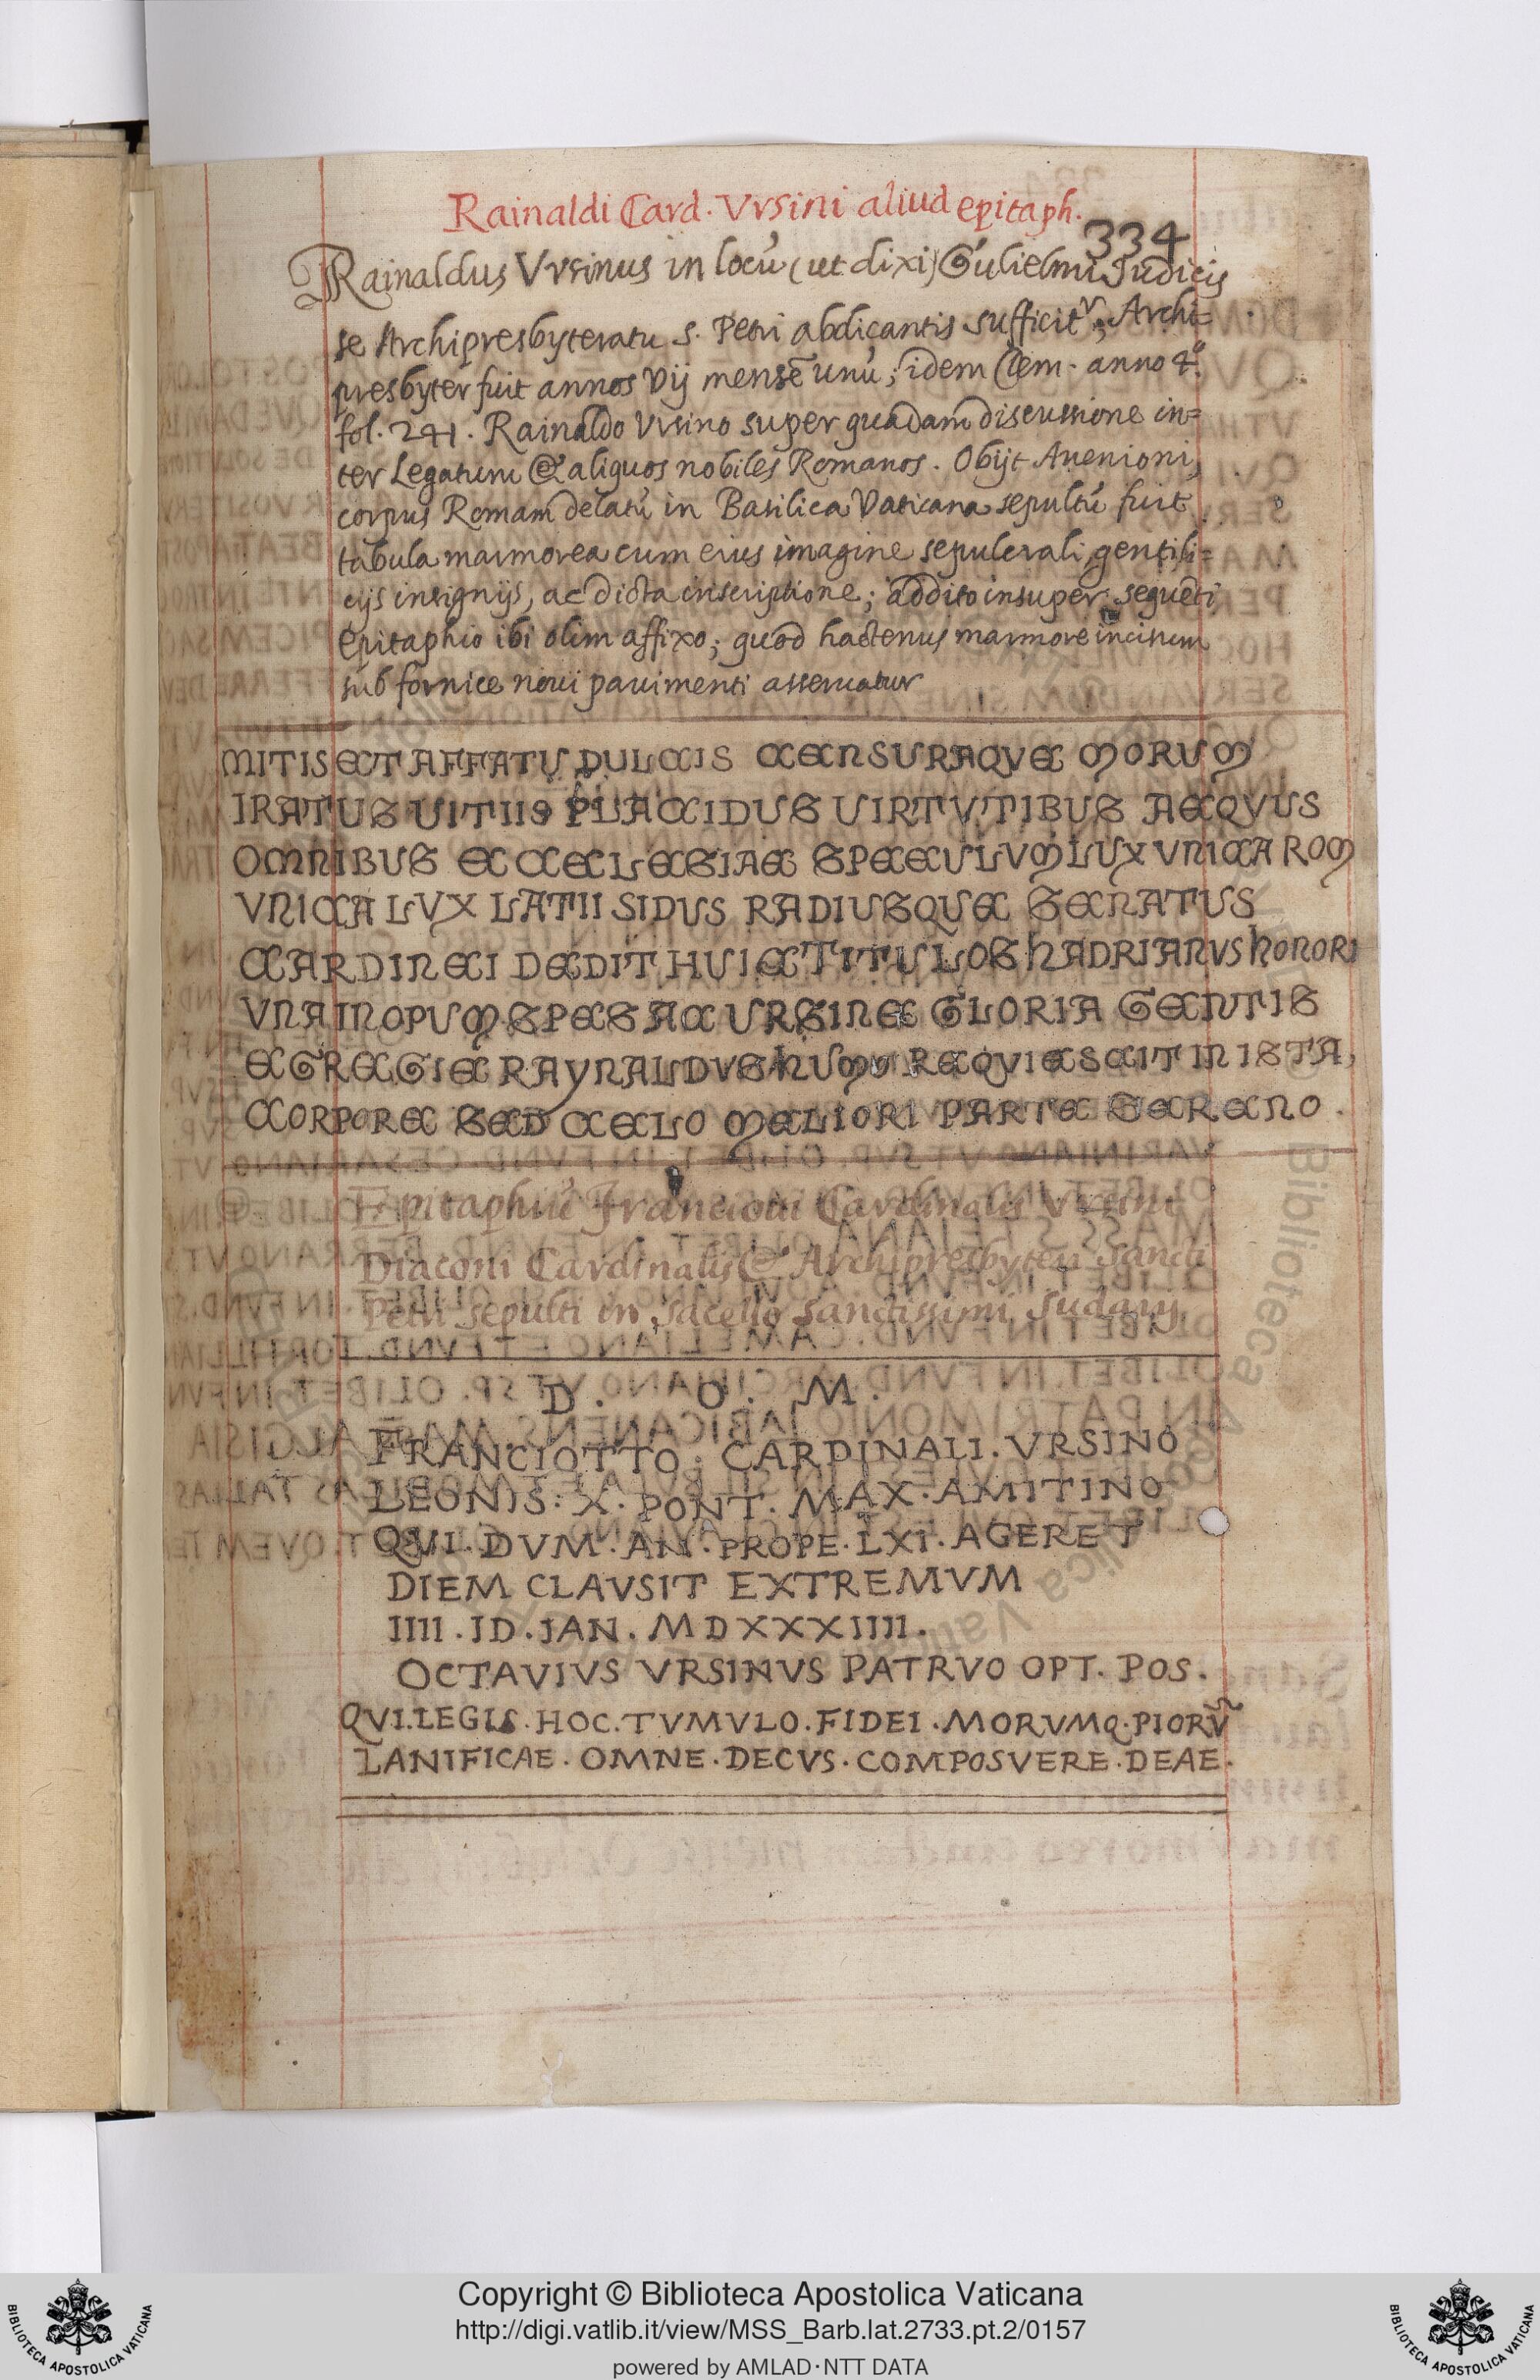 Rainaldi Card. Vrsini aliud epitaph.
334
Rainaldus Vrsinus in locū (ut dixi) Gulielmi Iudicis
se Archipresbyteratu S. Petri abdicantis sufficitʳ, Archi=
presbyter fuit annos vij mensē unū; idem Clem. anno 4.º
fol. 241. Rainaldo Vrsino super quadam discussione in=
ter Legatum & aliquos nobiles Romanos. Obijt Auenioni,
corpus Romam delatū in Basilica Vaticana sepultū fuit
tabula marmorea cum eius imagine sepulcrali gentili=
cijs insignijs, ac dicta inscriptione; addito insuper sequēti
epitaphio ibi olim affixo; quod hactenus marmore incisum
sub fornice noui pauimenti asseruatur
MITIS ET AFFATU DULCIS CENSURAQVE MORUM
IRATUS UITIIS PLACIDUS UIRTVTIBUS AEQVUS
OMNIBUS ECCELESIAE SPEEULVM LUX VNICA ROM
VNICA LVX LATII SIDVS RADIUSQUE SENATUS
CARDINEI DEDIT HUIC TITULOS HADRIANVS HONORI
VNA INOPUM SPES AC URSINE GLORIA GENTIS
EGREGIE RAYNALDVS HUMO REQVIESCIT IN ISTA,
CORPORE SED CELO MELIORI PARTE SERENO.
Epitaphiū Franciotti Cardinalis Vrsini
Diaconi Cardinalis & Archipresbyteri Sancti
Petri sepulti in Sacello sanctissimi Sudarij
D. O. M.
FRANCIOTTO. CARDINALI. VRSINO
LEONIS. X. PONT. MAX. AMITINO
QVI. DVM. AN. PROPE. LXI. AGERET
DIEM CLAVSIT EXTREMVM
IIII. ID. JAN. MDXXXIIII.
OCTAVIVS VRSINVS PATRVO OPT. POS.
QVI.LEGIS.HOC.TVMVLO.FIDEI.MORVMQ.PIORṼ
LANIFICAE.OMNE.DECVS.COMPOSVERE.DEAE.
Copyright © Biblioteca Apostolica Vaticana
http://digi.vatlib.it/view/MSS_Barb.lat.2733.pt.2/0157
powered by AMLAD·NTT DATA
BIBLIOTECA APOSTOLICA VATICANA
BIBLIOTECA APOSTOLICA VATICANA